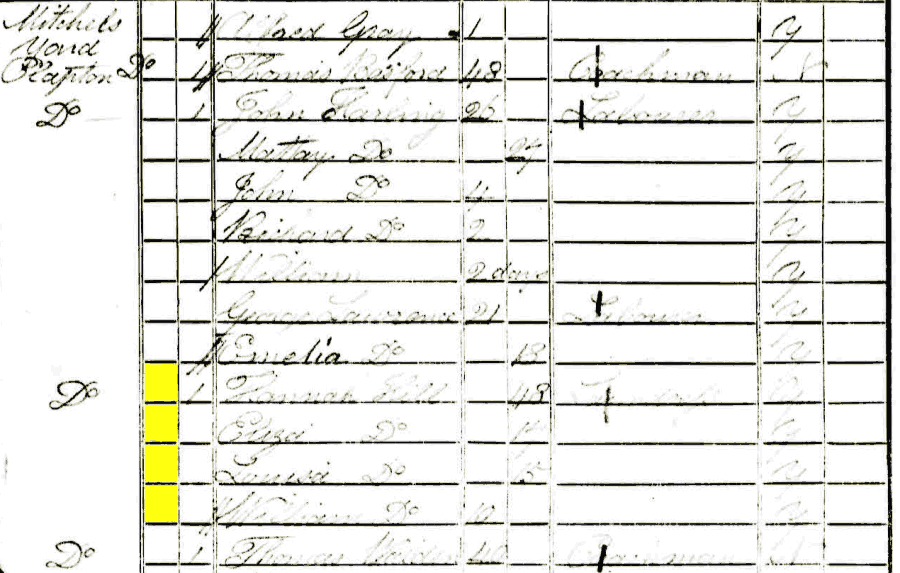 Mitchels Alfred Gray 1 y
Yard
Clapton Do 1 Thomas 48 Coachman N
Do 1 John Harling 26 Labourer y
Do 27 y
John Do 4 y
Richard Do 2 y
William 2 days y
George Lawrence 21 Labourer y
Emelia Do 18 y
Do 1 Hannah Hill 48 y
Eliza Do y
Louisa Do 15 y
William Do y
Do 1 Thomas 40 N